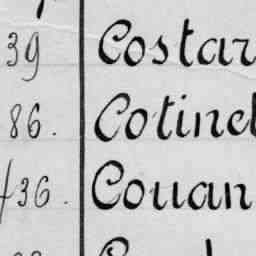 39 Costar
86. Cotinet
436. Couan